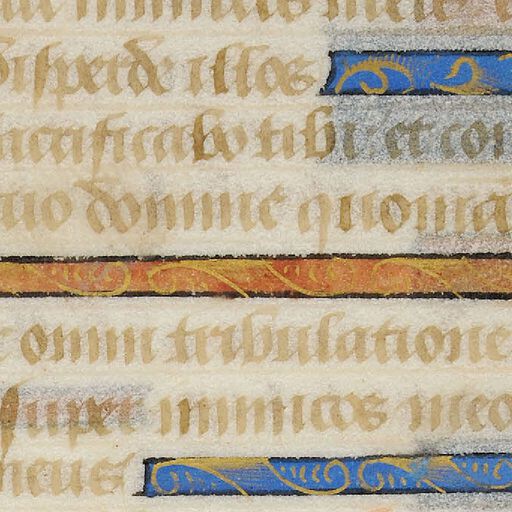 disperde illos
sacrificabo tibi et con
tuo domine quonia
omni tribulatione
super inimicos meo
meus